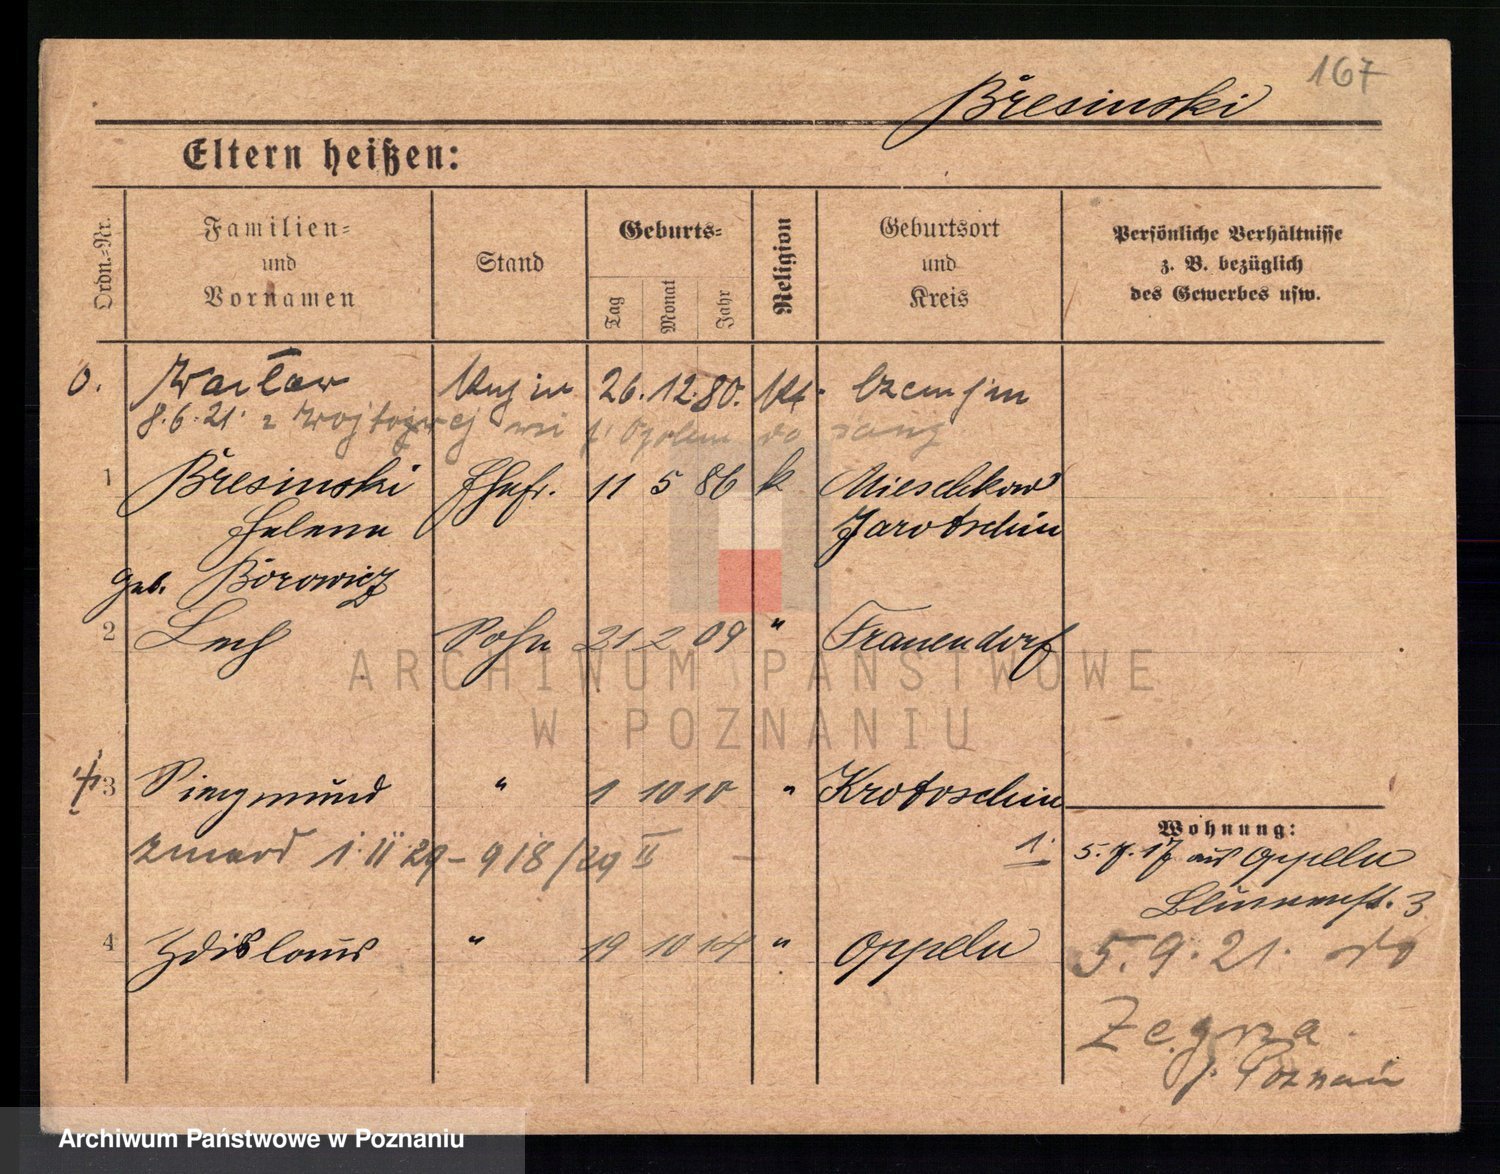 167
Břesinski
Eltern heißen:
Ordn.-Nr.
Familien-
und
Vornamen
Stand
Geburts-
Tag
Monat
Jahr
Religion
Geburtsort
und
Kreis
Persönliche Verhältnisse
z. B. bezüglich
des Gewerbes usw.
0. Wacław 26. 12. 80.
8.6.21. z
1 Břesinski Ehefr. 11 5 86 k Mieschkow
Helene Jarotschin
geb. Borowicz
2 Lech Sohn 21 2 09 " Frauendorf
ARCHIWUM PAŃSTWOWE
W POZNANIU
3 Siegmund " 1 10 10 " Krotoschin
zmarł 1. II 29 - 918/29 II 1.
4 Zdislaus " 19 10 14 " Oppeln
Wohnung:
5. 7. 17 aus Oppeln
Blumenst. 3
5. 9. 21. do
Zegrza
p. Poznań
Archiwum Państwowe w Poznaniu